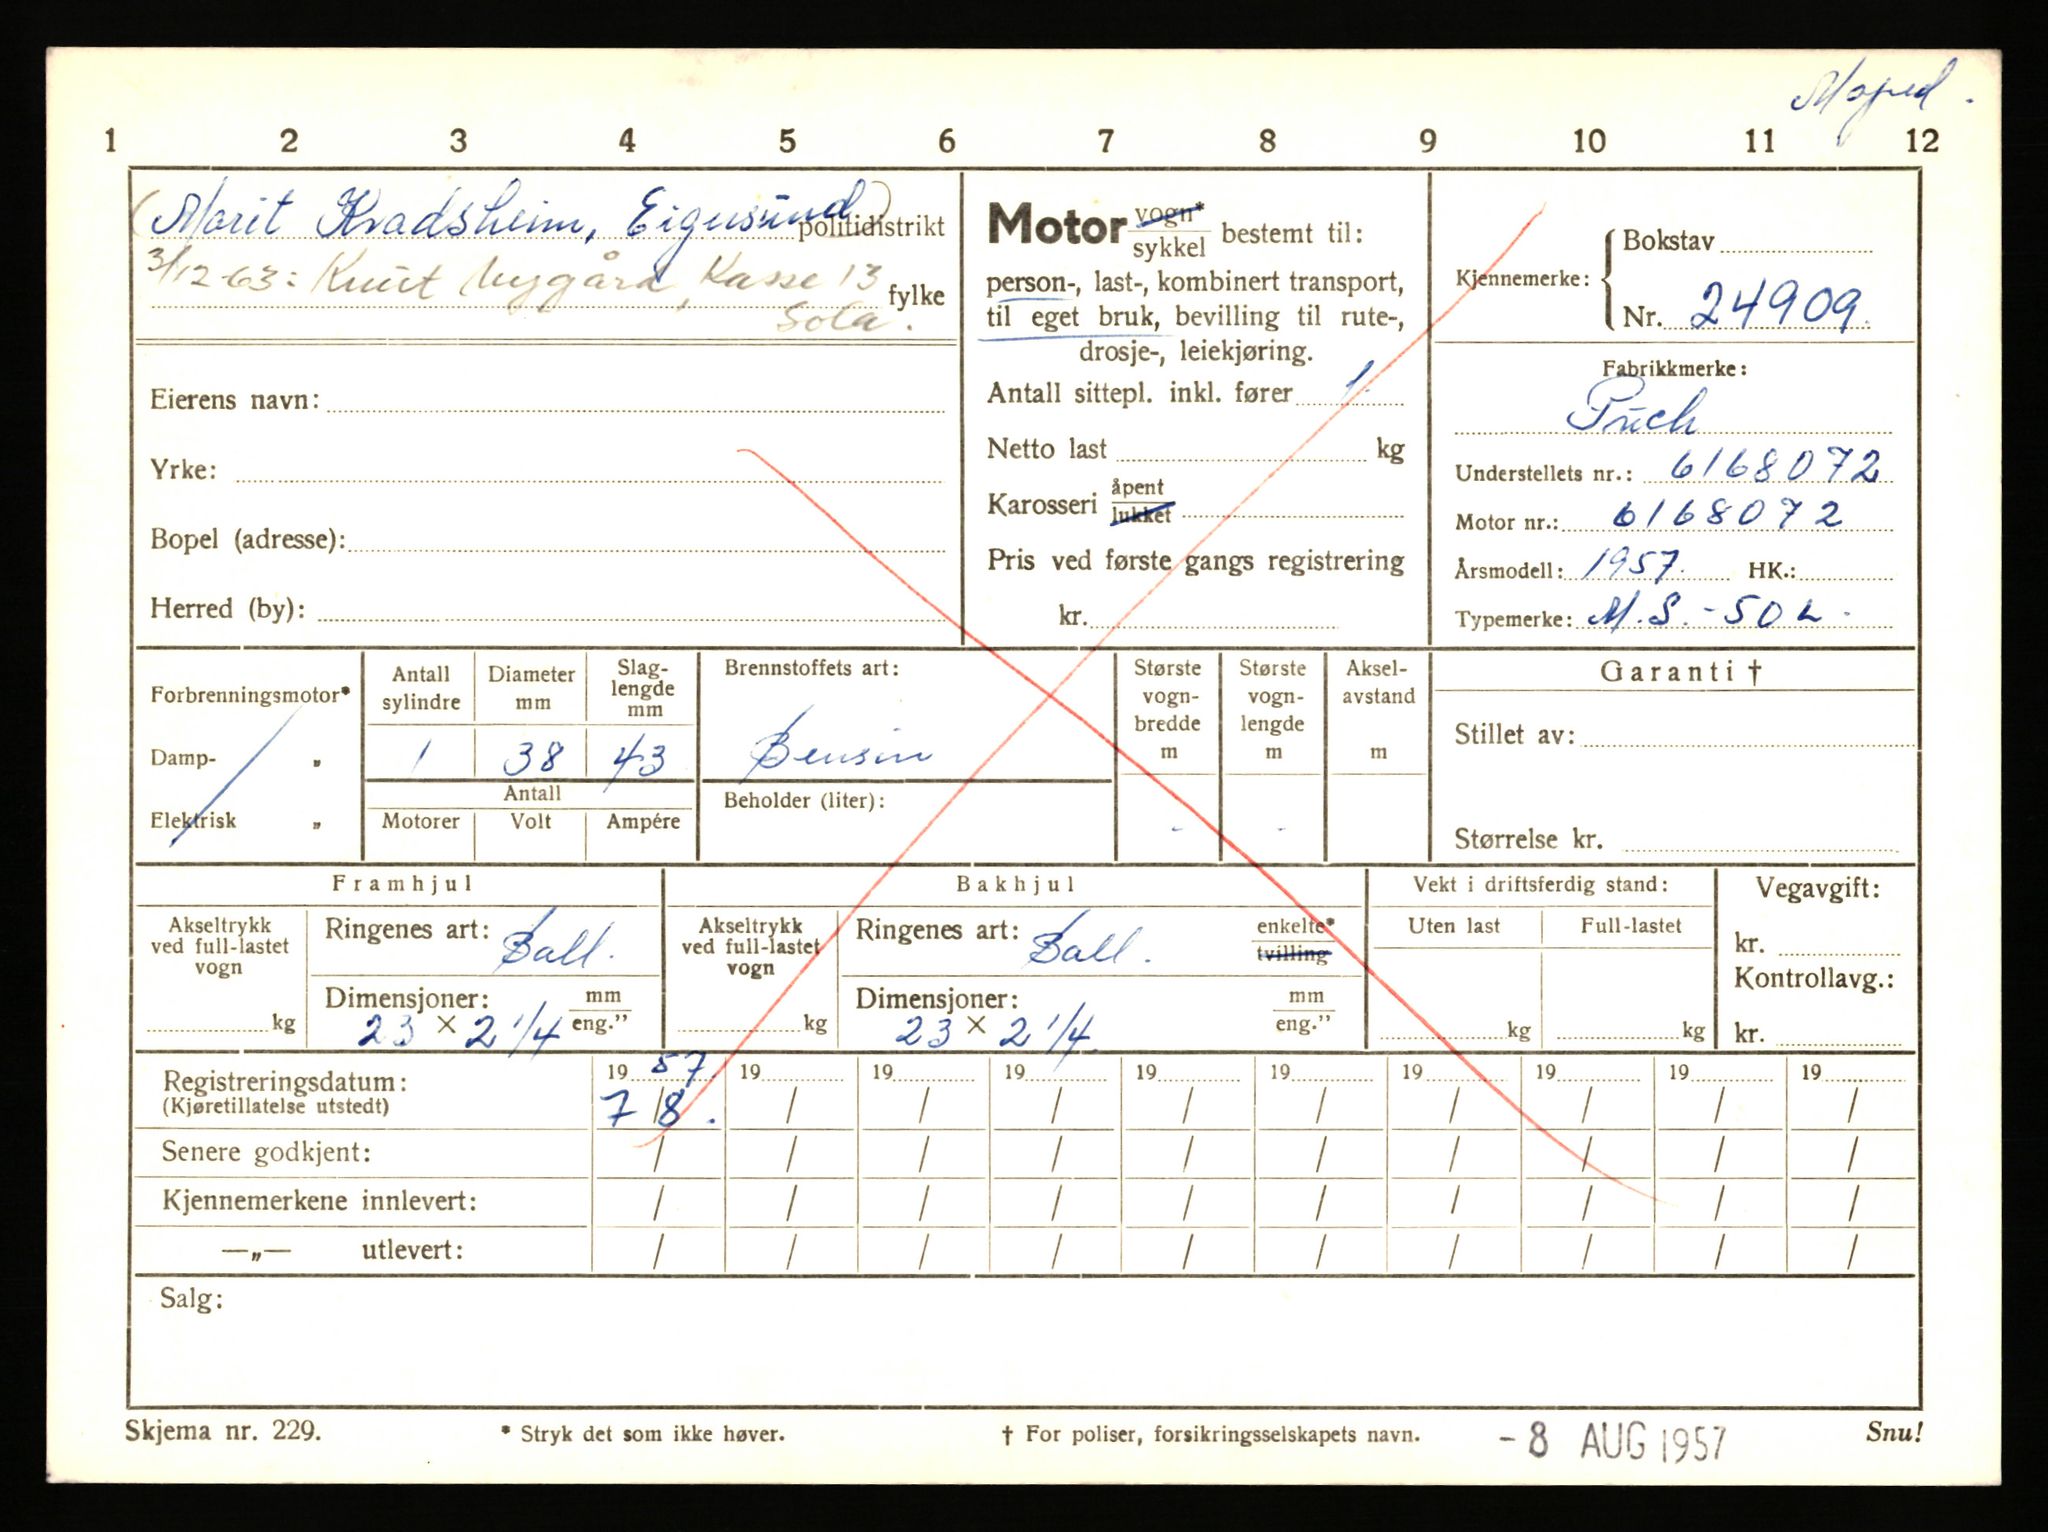 Moped.
1 2 3 4 5 6 7 8 9 10 11 12
(Marit Kvadsheim, Eigersund) politidistrikt
3/12-63: Knut Nygård, Kasse 13 fylke
Sola.
Eierens navn:
Yrke:
Bopel (adresse):
Herred (by):
Motor vogn* sykkel bestemt til:
person-, last-, kombinert transport,
til eget bruk, bevilling til rute-,
drosje-, leiekjøring.
Antall sittepl. inkl. fører 1.
Netto last kg
Karosseri åpent lukket
Pris ved første gangs registrering
kr.
Kjennemerke: Bokstav
Nr. 24909.
Fabrikkmerke:
Puch
Understellets nr.: 6168072
Motor nr.: 6168072
Årsmodell: 1957. HK.:
Typemerke: M.S.-50 L.
Forbrenningsmotor*
Damp- „
Elektrisk „
Antall sylindre Diameter mm Slag-lengde mm
1 38 43
Antall
Motorer Volt Ampére
Brennstoffets art:
Bensin
Beholder (liter):
Største vogn-bredde m
-
Største vogn-lengde m
-
Aksel-avstand m
Garanti †
Stillet av:
Størrelse kr.
Framhjul
Akseltrykk ved full-lastet vogn
kg
Ringenes art: Ball.
Dimensjoner: mm eng."
23 × 2 1/4
Bakhjul
Akseltrykk ved full-lastet vogn
kg
Ringenes art: Ball. enkelte* tvilling
Dimensjoner: mm eng."
23 × 2 1/4.
Vekt i driftsferdig stand:
Uten last Full-lastet
kg kg
Vegavgift:
kr.
Kontrollavg.:
kr.
Registreringsdatum: 19 57. 19 19 19 19 19 19 19 19 19
(Kjøretillatelse utstedt) 7/8. / / / / / / / / /
Senere godkjent: / / / / / / / / / /
Kjennemerkene innlevert: / / / / / / / / / /
—„— utlevert: / / / / / / / / / /
Salg:
Skjema nr. 229. * Stryk det som ikke høver. † For poliser, forsikringsselskapets navn. -8 AUG 1957 Snu!